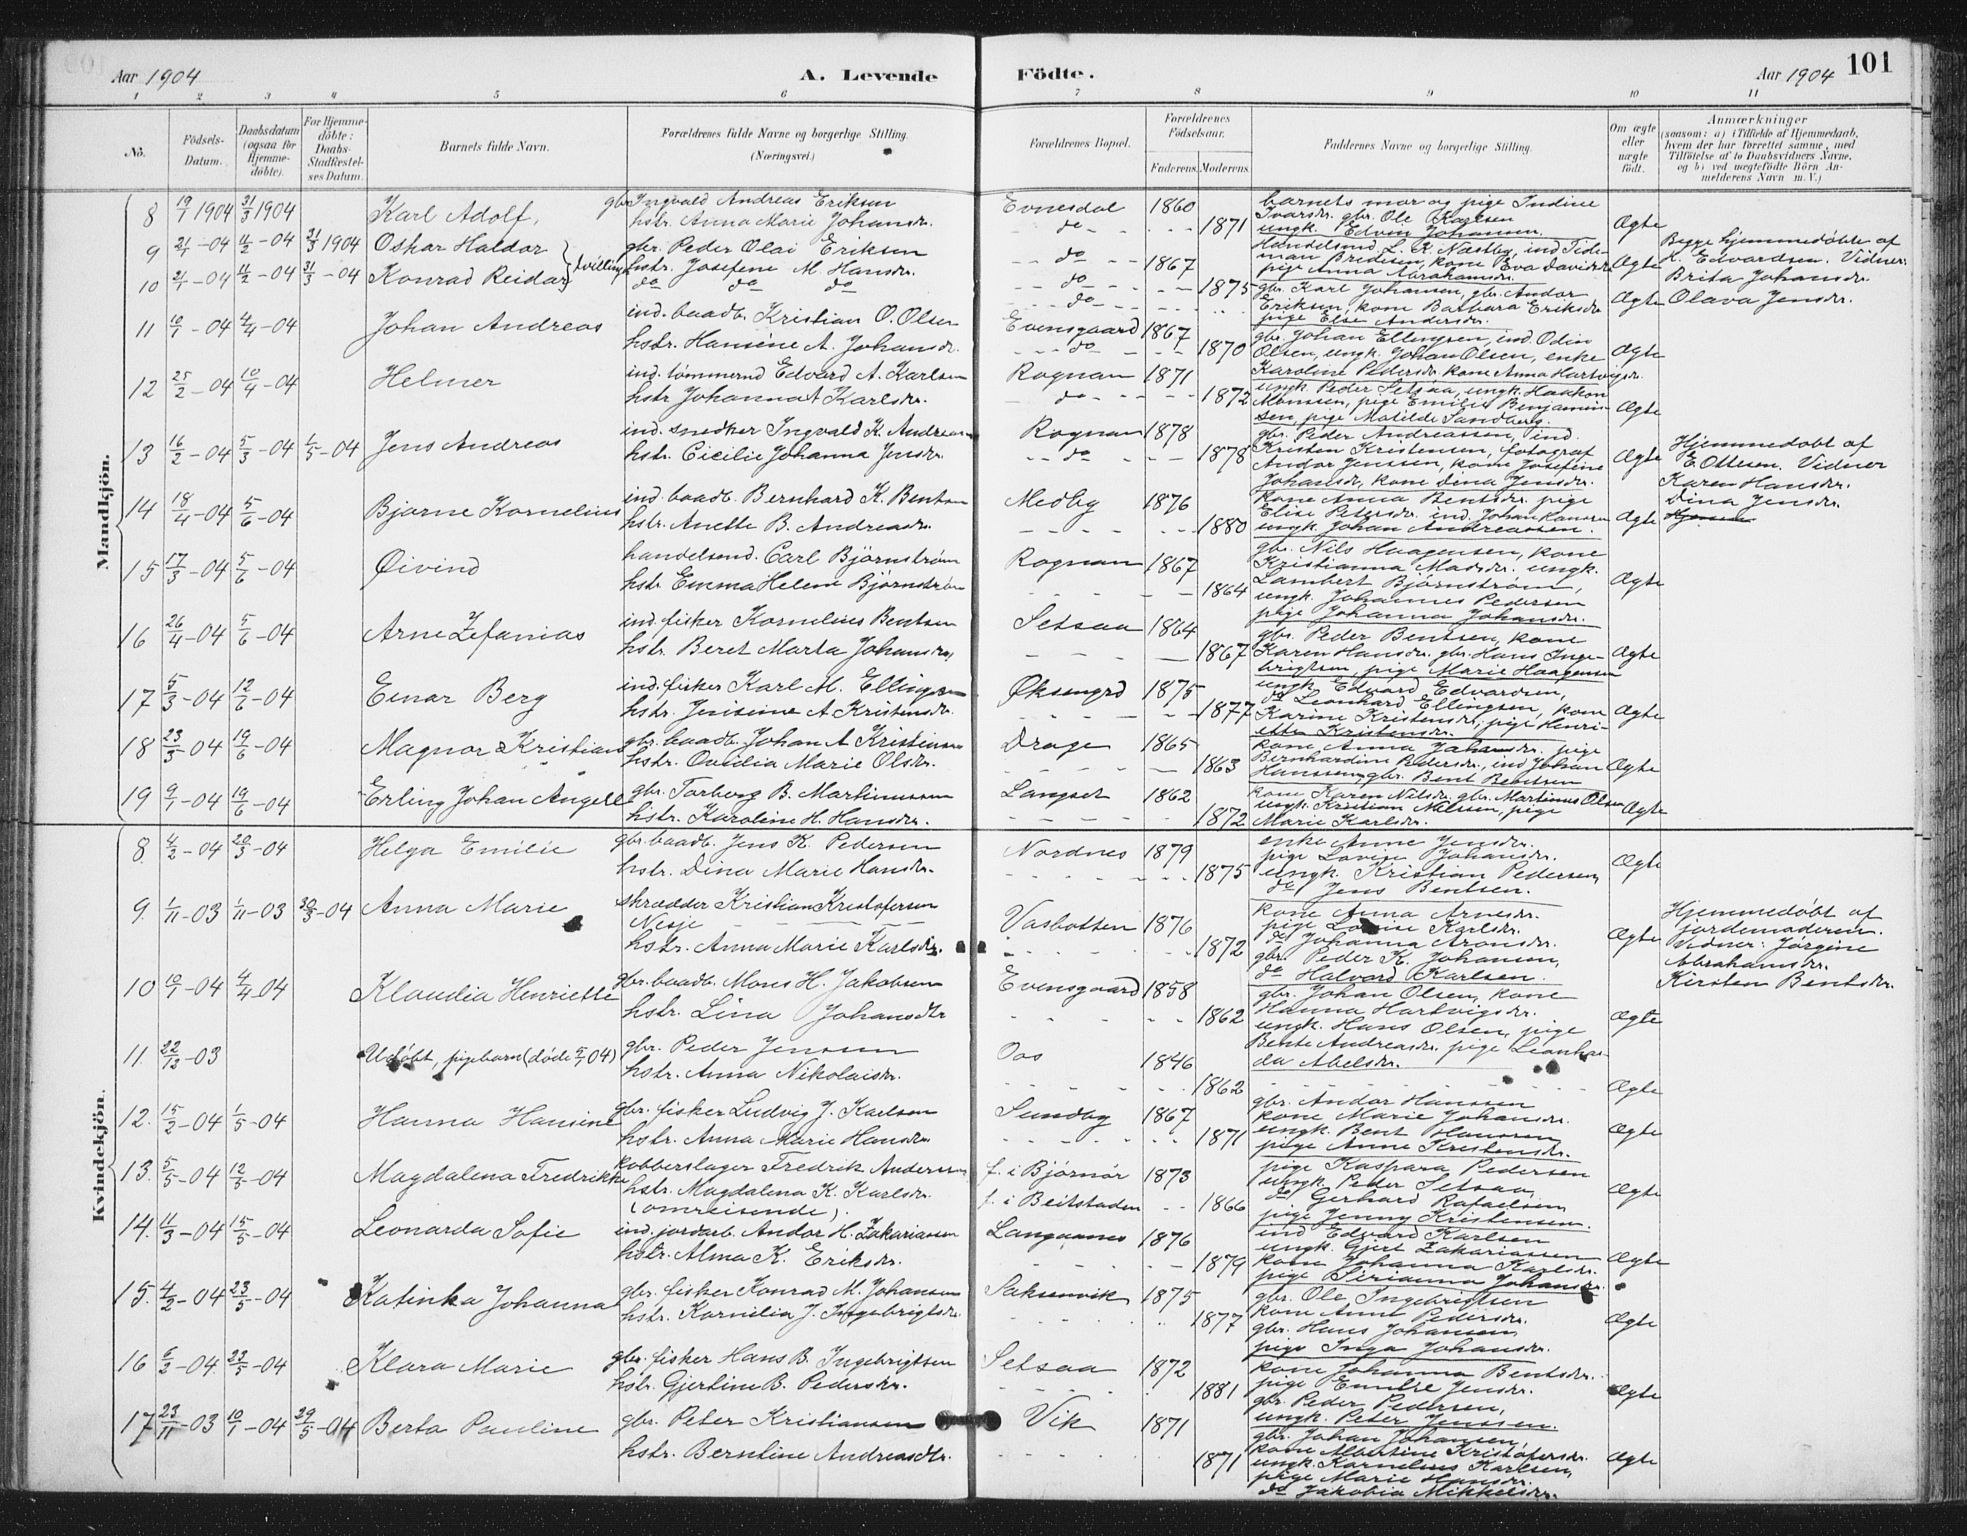 Aar 1904
A. Levende
Födte.
Aar 1904
101
1 2 3 4 5 6 7 8 9 10 11
No.
Födsels-Datum.
Daabsdatum (ogsaa for Hjemme-döbte).
For Hjemme-döbte: Daabs-Stadfæstel-ses Datum.
Barnets fulde Navn.
Forældrenes fulde Navne og borgerlige Stilling.
(Næringsvei.)
Forældrenes Bopæl.
Forældrenes Födselsaar.
Faderens. Moderens.
Faddernes Navne og borgerlige Stilling.
Om ægte eller uægte födt.
Anmærkninger
(saasom: a) i Tilfælde af Hjemmedaab, hvem der har forrettet samme, med Tilföielse af to Daabsvidners Navne, og b) ved uægtefödte Börn An-melderens Navn m. V.)
Mandkjön.
8 19/1 1904 31/3 1904 Karl Adolf, gbr. Ingvald Andreas Eriksen
hstr. Anna Marie Johansdr.
Evnesdal 1860
do 1871
barnets mor og pige Indine
Ivarsdr. gbr. Ole Karlsen
ungk. Edvin Johansen.
Ægte
9 21/1 -04 11/2 -04 31/3 1904 Oskar Haldor
10 21/1 -04 11/2 -04 31/3 -04 Konrad Reidar } tvilling
gbr. Peder Olai Eriksen
hstr. Josefine M. Hansdr.
do do do
do 1867
do 1875
do
Handelsmd L. A. Næstby, ind Tide-
man Bredesen, kone Eva Davidsdr
pige Anna Abrahamsdr.
gbr. Karl Johansen, gbr. Andor
Eriksen, kone Barbara Eriksdr
pige Else Andersdr.
Ægte
Ægte
Begge hjemmedøbte af
K. Edvardsen. Vidner:
Brita Johansdr.
Olava Jensdr.
11 10/1 -04 4/4 -04 Johan Andreas
ind. baadb. Kristian O. Olsen
hstr. Hansine A. Johansdr.
Evensgaard 1867
do 1870
gbr. Johan Ellingsen, ind Odin
Olsen, ungk. Johan Olsen, enke
Karoline Pedersdr kone Anna Hartvigsdr.
Ægte
12 25/2 -04 10/4 -04 Helmer
ind. tömmermd Edvard A. Karlsen
hstr Johanna A Karlsdr.
Rognan 1871
do 1872
ungk. Peder Setsaa, ungk. Haakon
Monssen, pige Emilie Benjamin-
sen, pige Matilde Sandberg.
Ægte
13 16/2 -04 5/3 -04 1/5 -04 Jens Andreas
ind. snedker Ingvald K. Andreasen
hstr. Cicilie Johanna Jensdr.
Rognan 1878
do 1878
gbr. Peder Andreassen, ind.
Kristen Kristensen, fotograf
Andor Jenssen, kone Josefine
Johansdr, kone Dina Jensdr.
Ægte
Hjemmedøbt af
E. Ottesen. Vidner
Karen Hansdr.
Dina Jensdr.
14 18/4 -04 5/6 -04 Bjarne Kornelius
ind. baadb. Bernhard K. Bentsen
hstr. Anette B. Andreasdr.
Medby 1876
1880
kone Anna Bentsdr. pige
Elise Petersdr. ind. Johan Hanssen
ungk. Johan Andreassen.
Ægte
15 17/3 -04 5/6 -04 Øivind
handelsmd. Carl Björnström
hstr. Emma Helene Björnström
Rognan 1867
1864
gbr. Nils Haagensen, kone
Kristianna Madsdr. ungk.
Lambert Björnström,
ungk. Johannes Pedersen
pige Johanna Johansdr.
Ægte
16 26/4 -04 5/6 -04 Arne Zefanias
ind. fisker Kornelius Bentsen
hstr. Beret Marta Johansdr,
Setsaa 1864
1867
gbr. Peder Bentsen, kone
Karen Hansdr. gbr. Hans Inge-
brigtsen, pige Marie Haagensen
Ægte
17 5/3 -04 12/6 -04 Einar Berg
ind. fisker Karl M. Ellingsen
hstr. Jensine A. Kristensdr.
Øksengrd 1875
1877
ungk. Edvard Edvardsen,
do Leonhard Ellingsen, kone
Karine Kristensdr, pige Henri-
ette Kristensdr.
Ægte
18 23/3 -04 19/6 -04 Magnor Kristian
gbr. baadb. Johan A Kristensen
hstr. Ovidia Marie Olsdr.
Drage 1865
1863
kone Anna Johansdr. pige
Bernhardine Pedersdr., ind Johan
Hanssen, gbr. Bent Bentsen
Ægte
19 9/1 -04 19/6 -04 Erling Johan Angell
gbr. Torberg B. Martinussen
hstr. Karoline H. Hansdr.
Langset 1862
1872
kone Karen Nilsdr. gbr. Martinus Olsen
ungk. Kristian Nilssen, pige
Marie Karlsdr.
Ægte
Kvindekjön.
8. 4/2 -04 20/3 -04 Helga Emilie
gbr. baadb. Jens K. Pedersen
hstr. Dina Marie Hansdr.
Nordnes 1879
1875
enke Anne Jensdr.
pige Lovise Johansdr.
ungk. Kristian Pedersen,
do Jens Bentsen.
Ægte
9. 1/11 -03 1/11 -03 30/3 -04 Anna Marie
skrædder Kristian Kristofersen
Nesje
hstr. Anna Marie Karlsdr.
Vasbotten 1876
1872
kone Anna Arnesdr.
pige Lovise Karlsdr.
do Johanna Aronsdr.
gbr. Peder K. Johansen,
do Halvard Karlsen.
Ægte
Hjemmedøbt af
jordemoderen.
Vidner: Jørgine
Abrahamsdr.
Kirsten Bentsdr.
10 10/1 -04 4/4 -04 Klaudia Henriette
gbr. baadb. Mons H. Jakobsen
hstr. Lina Johansdtr
Evensgaard 1858
1862
gbr. Johan Olsen, kone
Hanna Hartvigsdr.
ungk. Hans Olsen, pige
Bente Andreasdr. pige Leonhar-
da Abelsdr.
Ægte
11. 22/12 -03 Udøbt, pigebarn (døde 5/1 04)
gbr. Peder Jenssen
hstr. Anna Nikolaisdr.
Os 1846
1862
Ægte
12. 15/2 -04 1/5 -04 Hanna Hansine
gbr. fisker Ludvig J. Karlsen
hstr. Anna Marie Hansdr
Sundby 1867
1871
gbr. Andor Hanssen
kone Marie Johansdr.
ungk. Bent Hanssen
pige Anne Kristensdr.
Ægte
13. 5/5 -04 12/5 -04 Magdalena Fredrikke
kobberslager Fredrik Andersen
hstr. Magdalena K. Karlsdr.
(omreisende).
f. i Bjørnör 1873
f. i Beitstaden 1866
pige Kaspara Pedersen
ungk. Peder Setsaa
do Gerhard Rafaelsen
pige Jenny Kristensen.
Ægte
14. 11/3 -04 15/5 -04 Leonarda Sofie
ind. jordarb. Andor H. Zakariassen
hstr. Alma K. Eriksdr.
Langaanes 1876
1879
ind Edvard Karlsen
ungk. Gjert Zakariassen
kone Johanna Karlsdr.
pige Serianna Johansdr.
Ægte
15. 4/2 -04 23/5 -04 Katinka Johanna
gbr. fisker Konrad M. Johansen
hstr. Kornelia J. Ingebrigtsdr.
Saksenvik 1875
1877
gbr. Ole Ingebrigtsen
kone Anne Pedersdr.
gbr. Hans Johansen
pige Inga Johansdr.
Ægte
16 6/2 -04 23/5 -04 Klara Marie
gbr. fisker Hans B. Ingebrigtsen
hstr. Gjertine B. Pedersdr.
Setsaa 1872
1881
kone Johanna Bentsdr.
pige Jensdr.
gbr. Peder Pedersen,
ungk. Peter Jenssen.
Ægte
17 23/11 -03 10/1 -04 29/5 -04 Berta Pauline
gbr. Peter Kristiansen
hstr. Berntine Andreasdtr.
Vik 1871
1871
gbr. Johan Johansen
kone Albertine Kristofersdr.
ungk. Kornelius Karlsen,
pige Marie Hansdr.
do Jakobia Mikkelsdr.
Ægte